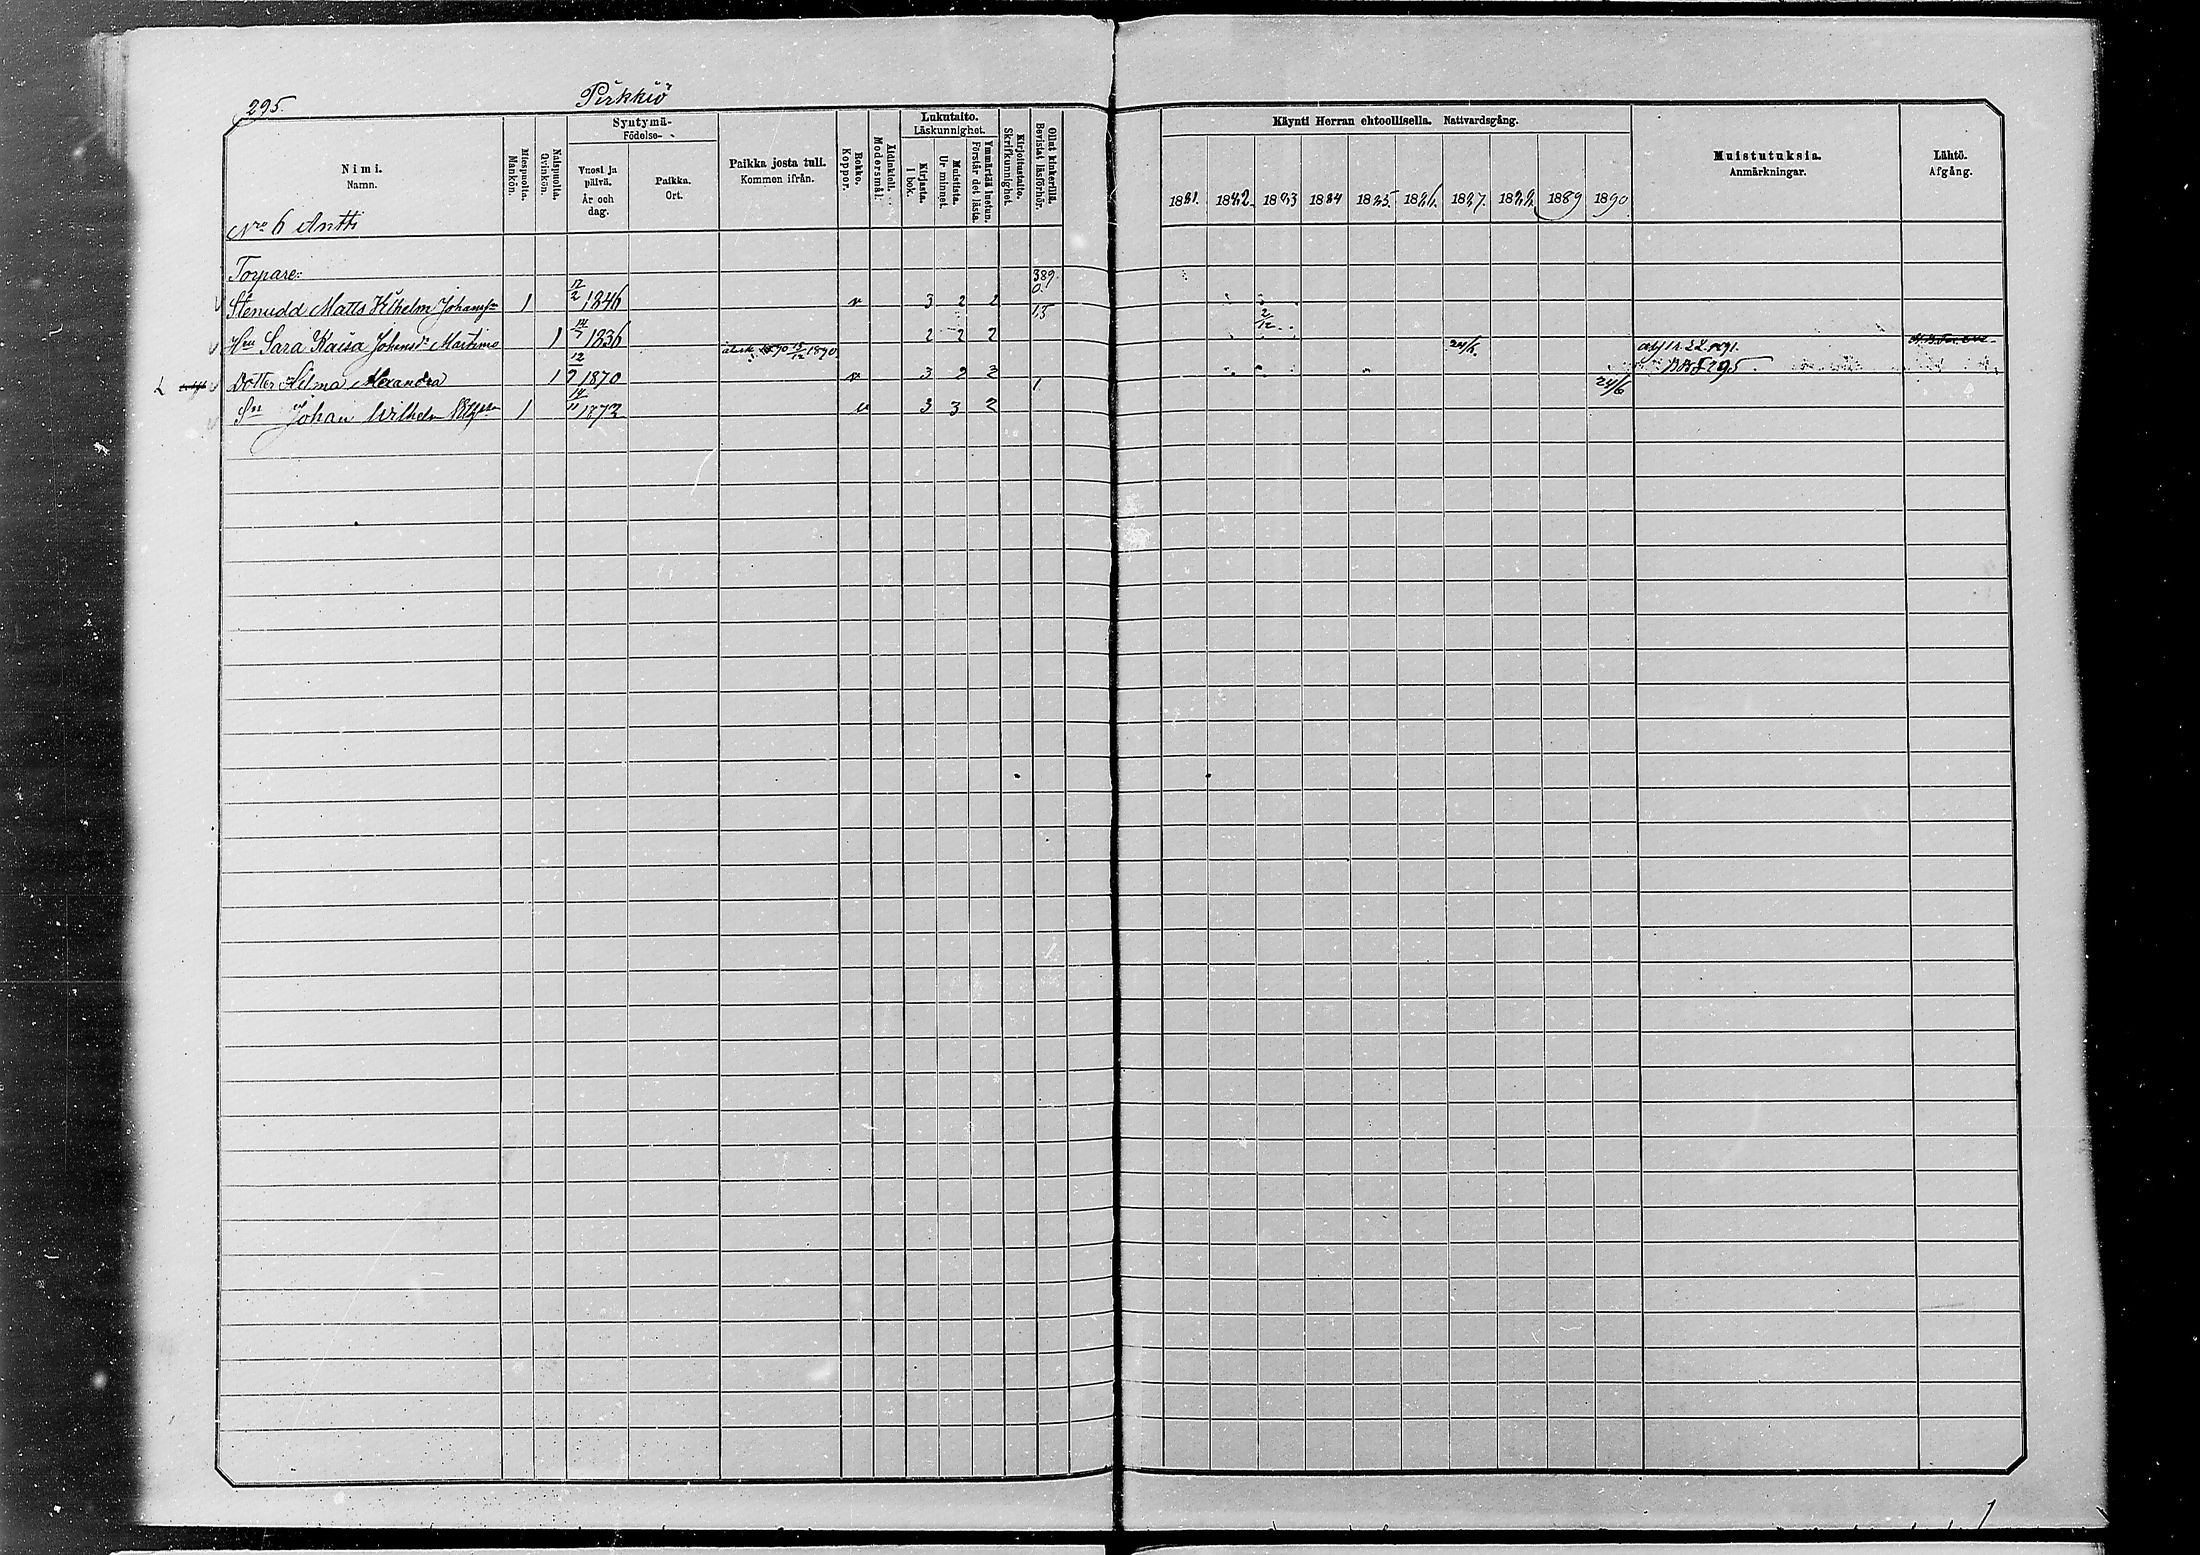 295.
Pirkkiö
Nimi.
Namn.
Miespuolia.
Mankön.
Naispuolia.
Qvinkön.
Syntymä-
Födelse-
Vuosi ja päivä.
År och dag.
Paikka.
Ort.
Paikka josta tuli.
Kommen ifrån.
Rokko.
Koppor.
Äidinkieli.
Modersmål.
Lukutaito.
Läskunnighet.
Kirjasta.
I bok.
Muistista.
Ur minnet.
Ymmärtää luetun.
Förstår det lästa.
Kirjoitustaito.
Skrifkunnighet.
Ollut kinkerillä.
Bevistat läsförhör.
Käynti Herran ehtoollisella. Nattvardsgång.
1881. 1882. 1883 1884 1885. 1886. 1887. 1888. 1889 1890
Muistutuksia.
Anmärkningar.
Lähtö.
Afgång.
Nro 6 Antti
Torpare: 389.
Stenudd Matts Vilhelm Johanss. 1 12/2 1846 v 3 2 2 0. 15
Hru Sara Kaisa Johansdr Martimo 1 14/7 1836 2 2 2 2/12
15/12 1890 24/6
Dotter Hilma Alexandra 1 12/9 1870 v 3 2 2 295.
Sn Johan Wilhelm 1 14/11 1873 v 3 3 2 1 24/6